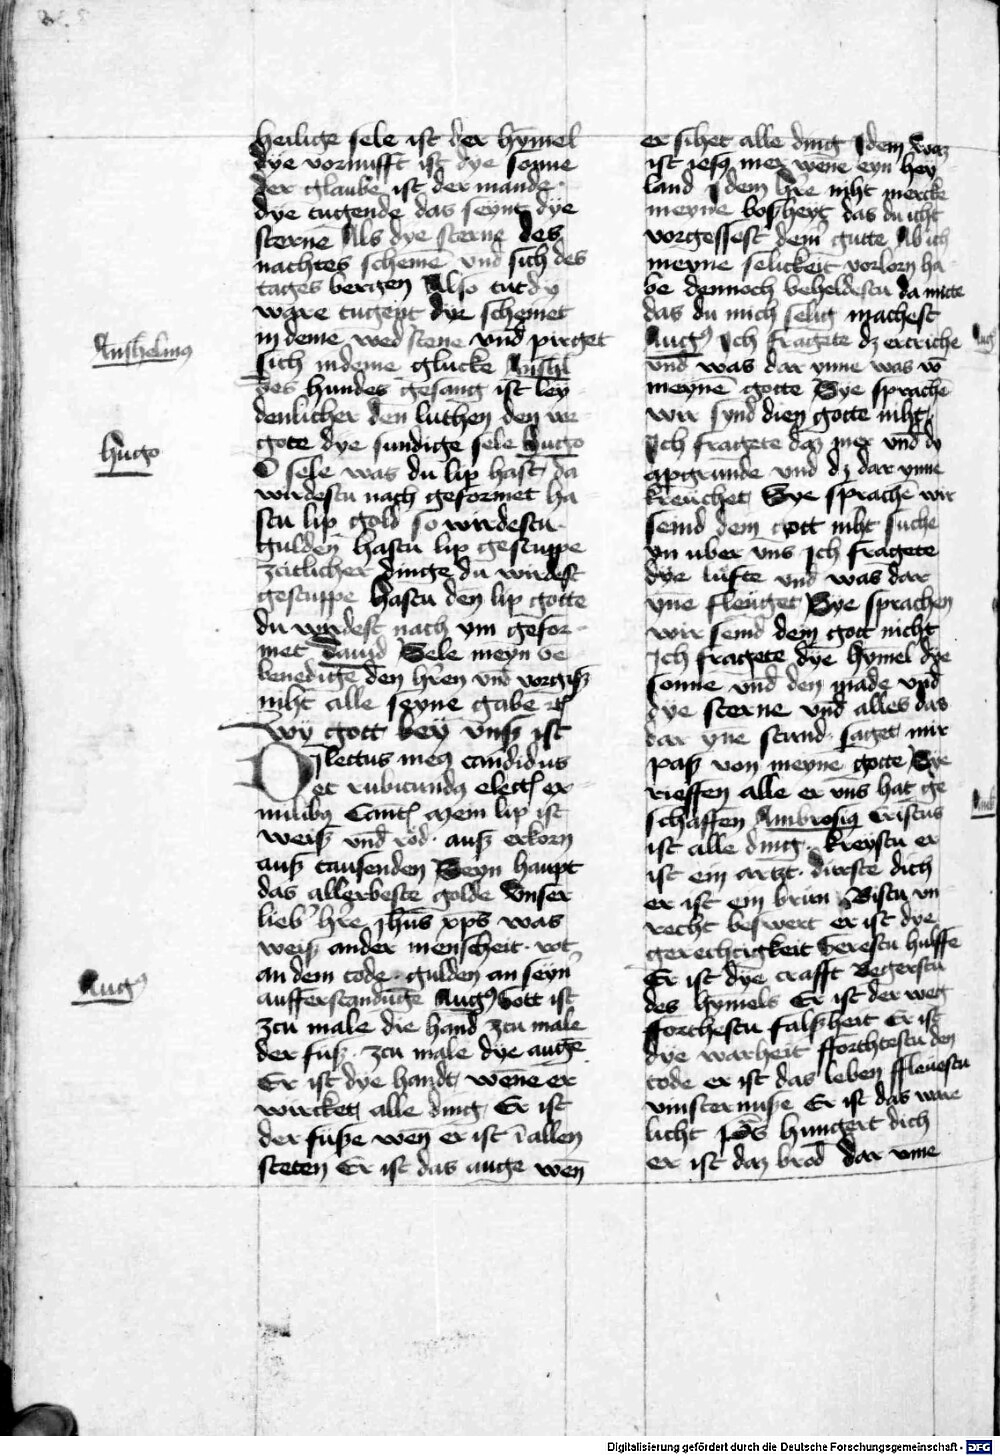 heilige sele ist der hymel
dye vornufft ist dye sonne
der glaube ist der mande
dye tugende das seynt dye
sternē Als dye sterne des
nachtes scheinē vnd sich des
tages bergen Also tut dy
ware tugent dye scheinet
in deme wed(er)stene vnd pirget
sich in deme glucke Anshl
Anshelmꝯ
Des hundes gesang ist ley
denlicher den luthen den
gote dye sundige sele hugo
hugo
O sele was du lip hast da
wirdestu nach geformet ha
stu lip gold so wirdestu
gulden hastu lip gestuppe
zeitlicher dinge du wirdest
gestuppe hastu den lip gotte
du wirdest nach ym gefor
met Dauid Sele meyn be
benedige den hr̄en vnd vorgiß
niht alle seyne gabe
wy gott bey vnß ist
Dilectus meꝯ candidus
et rubicundꝯ elect9 ex
milibꝯ Cant9 Mein lip ist
weiß vnd rod auß erkorn
auß tausenden Seyn haupt
das allerbeste golde Vnser
lieb' hr̄e jhūs xp̄s was
weiß an der menscheit rot
an dem tode gulden an seyn'
aufferstandūge Aug9 Gott ist
Aug9
zcu male die hand zcu male
der fuß zcu male dye auge
Er ist dye handt wēne er
wircket alle ding Er ist
der fuße wen̄ er ist ī allen
steten Er ist das auge wen̄
er sihet alle ding Idem waz
ist jesꝯ mer wēne eyn hey
land Idem hr̄e niht mercke
meyne bosheyt das du icht
vorgessest dem' gutte Ab ich
meyne selickeit vorlorn ha
be dennoch beheldestu da mitte
das du mich selig machest
Aug9 Ich fragete dz ertriche
Aug
vnd was dar ynne was
meynē gotte Sye sprachē
wir synd dien gotte niht
Ich fragete daz mer vnd dy
apgrunde vnd dz dar ynne
kreuchet Sye sprachē wir
seind dem gott niht suche
yn uber vns Ich fragete
dye lufte vnd was dar
yne fleuget Sye sprachen
wir seind dein gott nicht
Ich fragete dye hymel dye
sonne vnd den made vnd
dye sterne vnd alles das
dar yne stand saget mir
paß von meyne gotte Sye
rieffen alle er vns hat ge
schaffen Ambrosiꝯ Cristus
Amb
ist alle ding kreystu er
ist ein artzt durste dich
er ist ein brun Bistu vn
recht beswert er ist dye
gerechtigkeit Gerestu hulffe
Er ist dye crafft Begerstu
des hymels Er ist der weg
fforchestu falßheit Er ist
dye warheit fforchtestu den
tode er ist das leben ffleuestu
vinsternuße Er ist das ware
licht hungert dich
er ist daz brod dar vmē
Digitalisierung gefördert durch die Deutsche Forschungsgemeinschaft - DFG